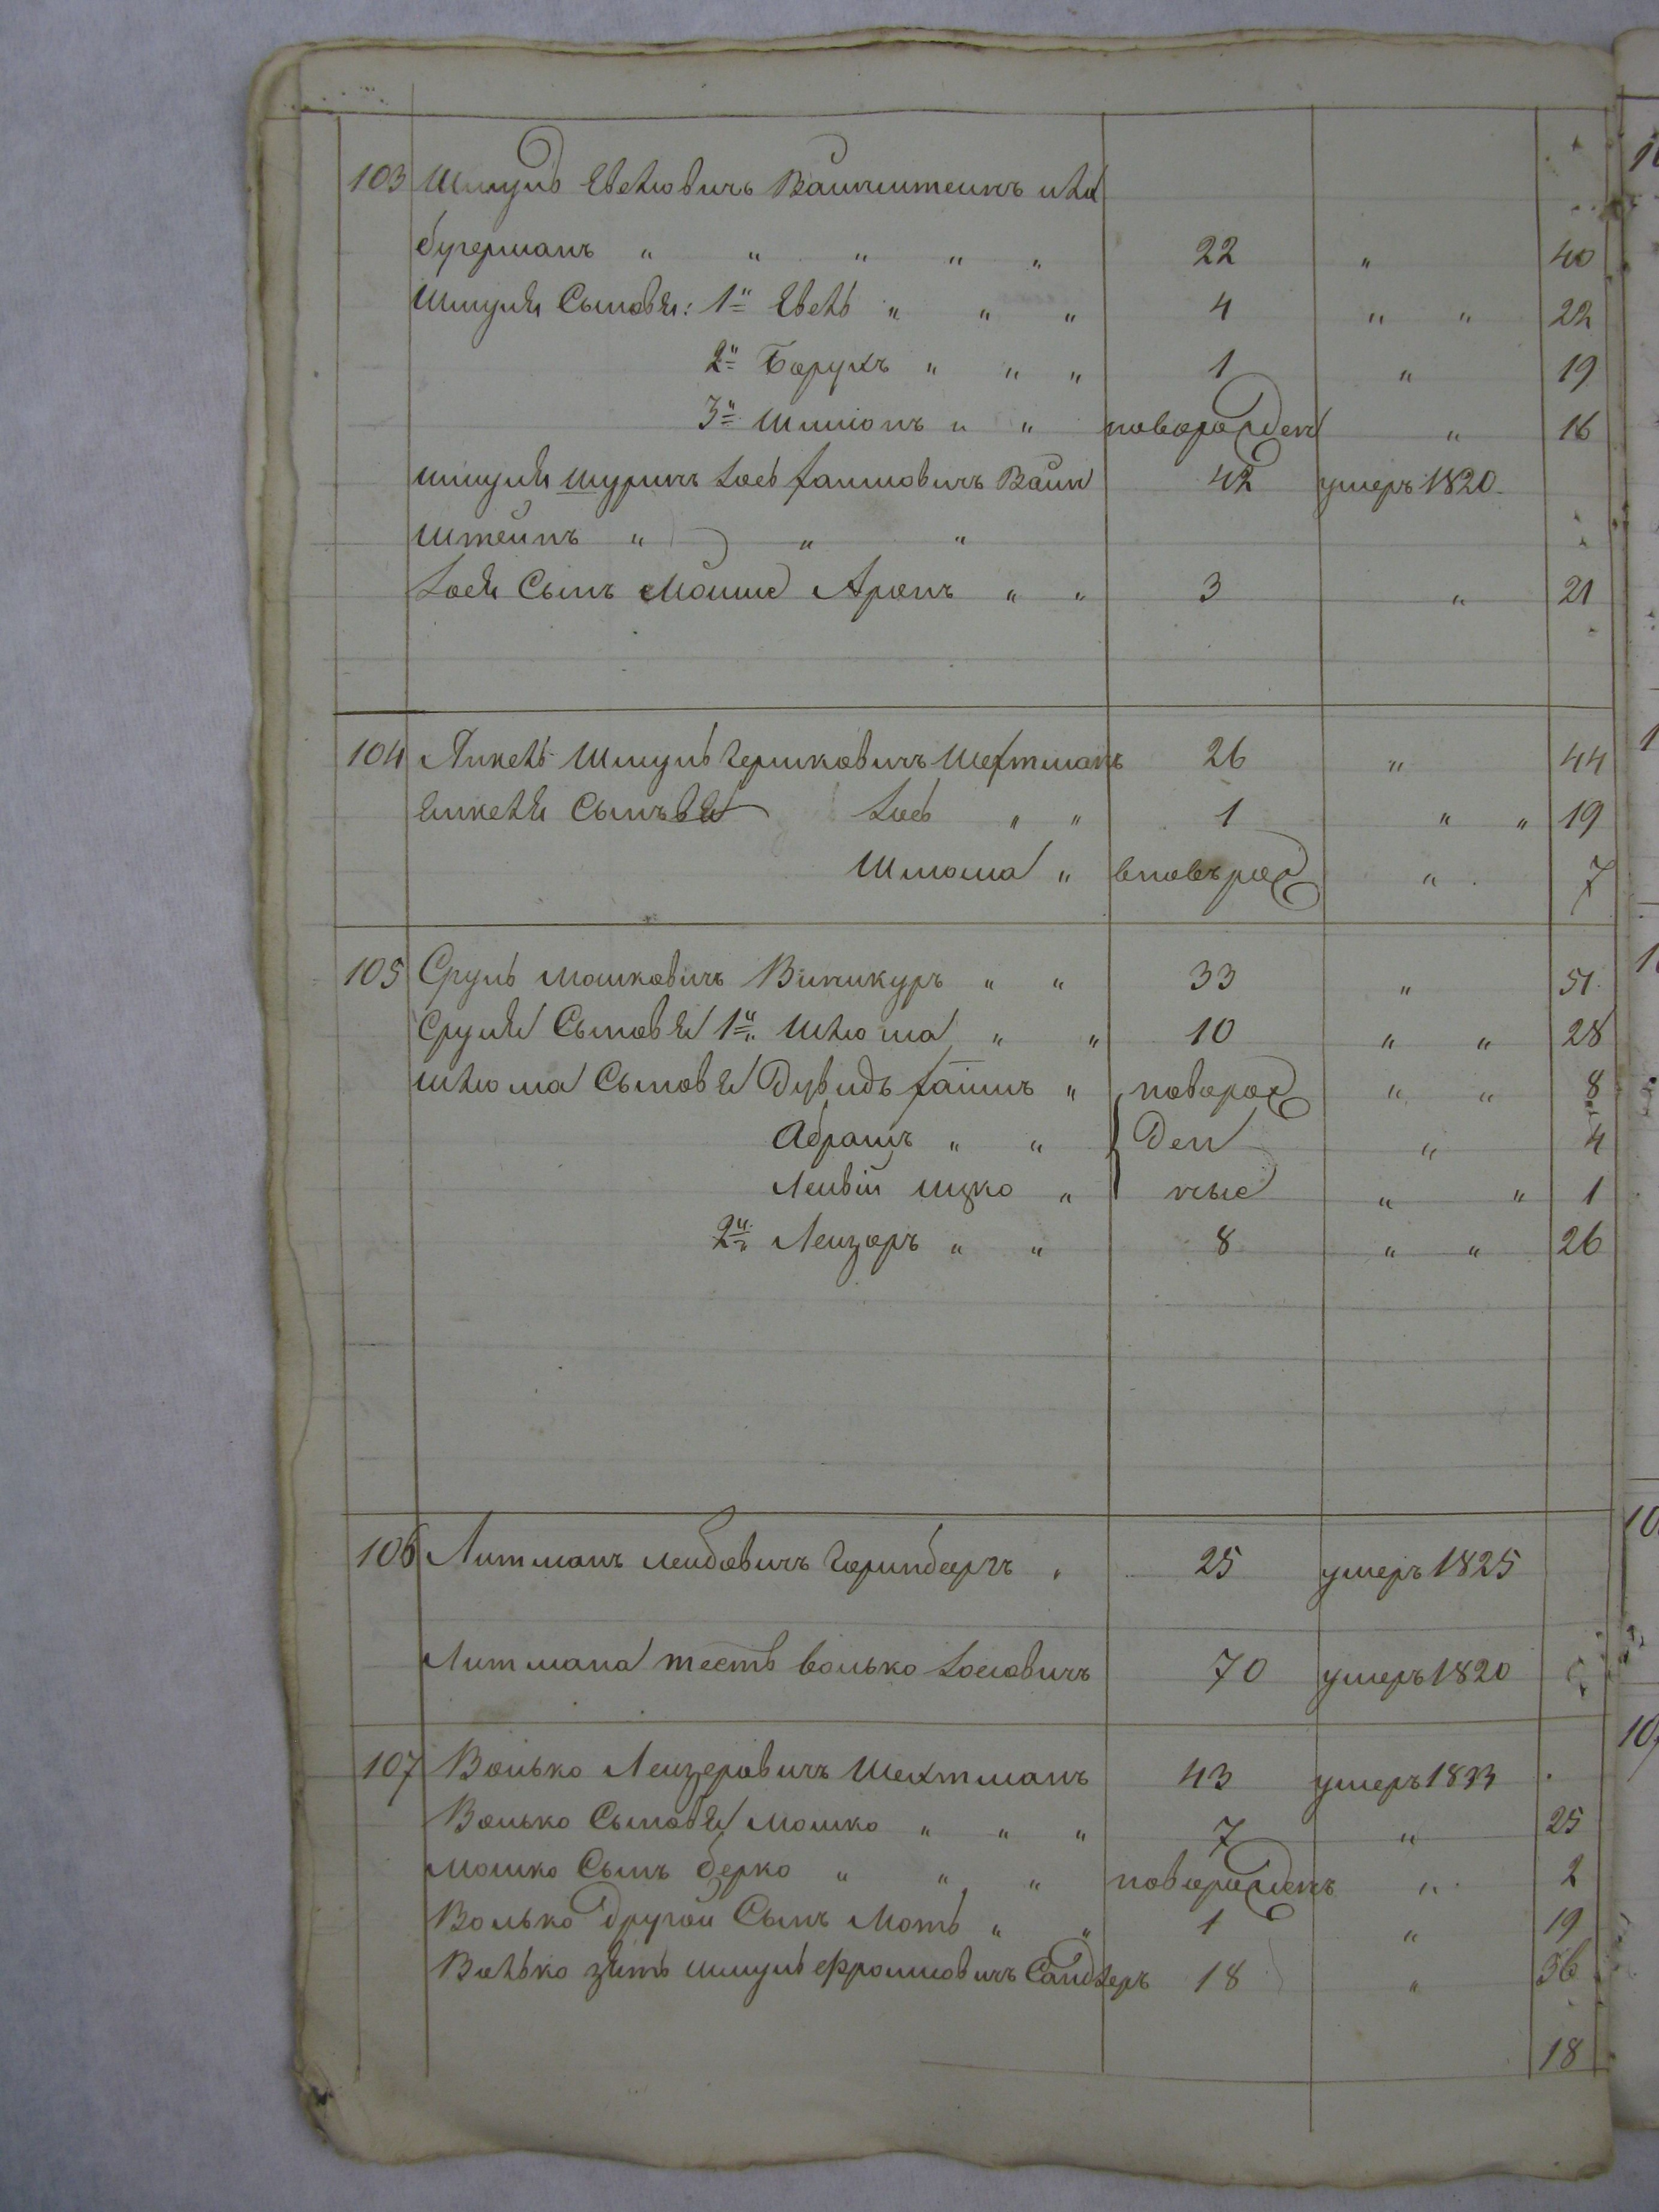 103 Шмуль Евелювичъ Ваинштеинъ или
бугерманъ " " " " " 22 " 40
Шмуля Сыновя: 1й Евель " " " 4 " " 22
2й Борухъ " " " 1 " 19
3й Шмионъ " " новорожден " 16
шмуля шуринъ Иось Хаимовичъ Ваин 42 умеръ 1820
Штейнъ " " "
Иося Сынъ Мошие Аронъ " " 3 " 21
104 Янкель Шмуль Гершковичъ Шехтманъ 26 " 44
Янкеля Сынъвя Иось " " 1 " " 19
Шмома " вновърож " 7
105 Сруль Мошковичъ Виникуръ " " 33 " 51
Сруля Сыновя 1й Шлюма " " 10 " " 28
Шлюма Сыновя Дувидъ Хаимъ " новорож " " 8
Абрамъ " " ден " 4
Леивiй ицко " ные " " 1
2й Леизоръ " " 8 " " 26
106 Литманъ леибовичъ Горинбергъ " 25 умеръ 1825
Литмана тесть волько Иосиовичъ 70 умеръ 1820
107 Волько Леизеровичъ Шехтманъ 43 умеръ 1833
Волько Сыновя Мошко " " " 7 " 25
Мошко Сынъ берко " " " новорожденъ " 2
Волько другой Сынъ Моть " " 1 " 19
Волько зять шмуль Фроимовичъ Сандлеръ 18 " 36
18